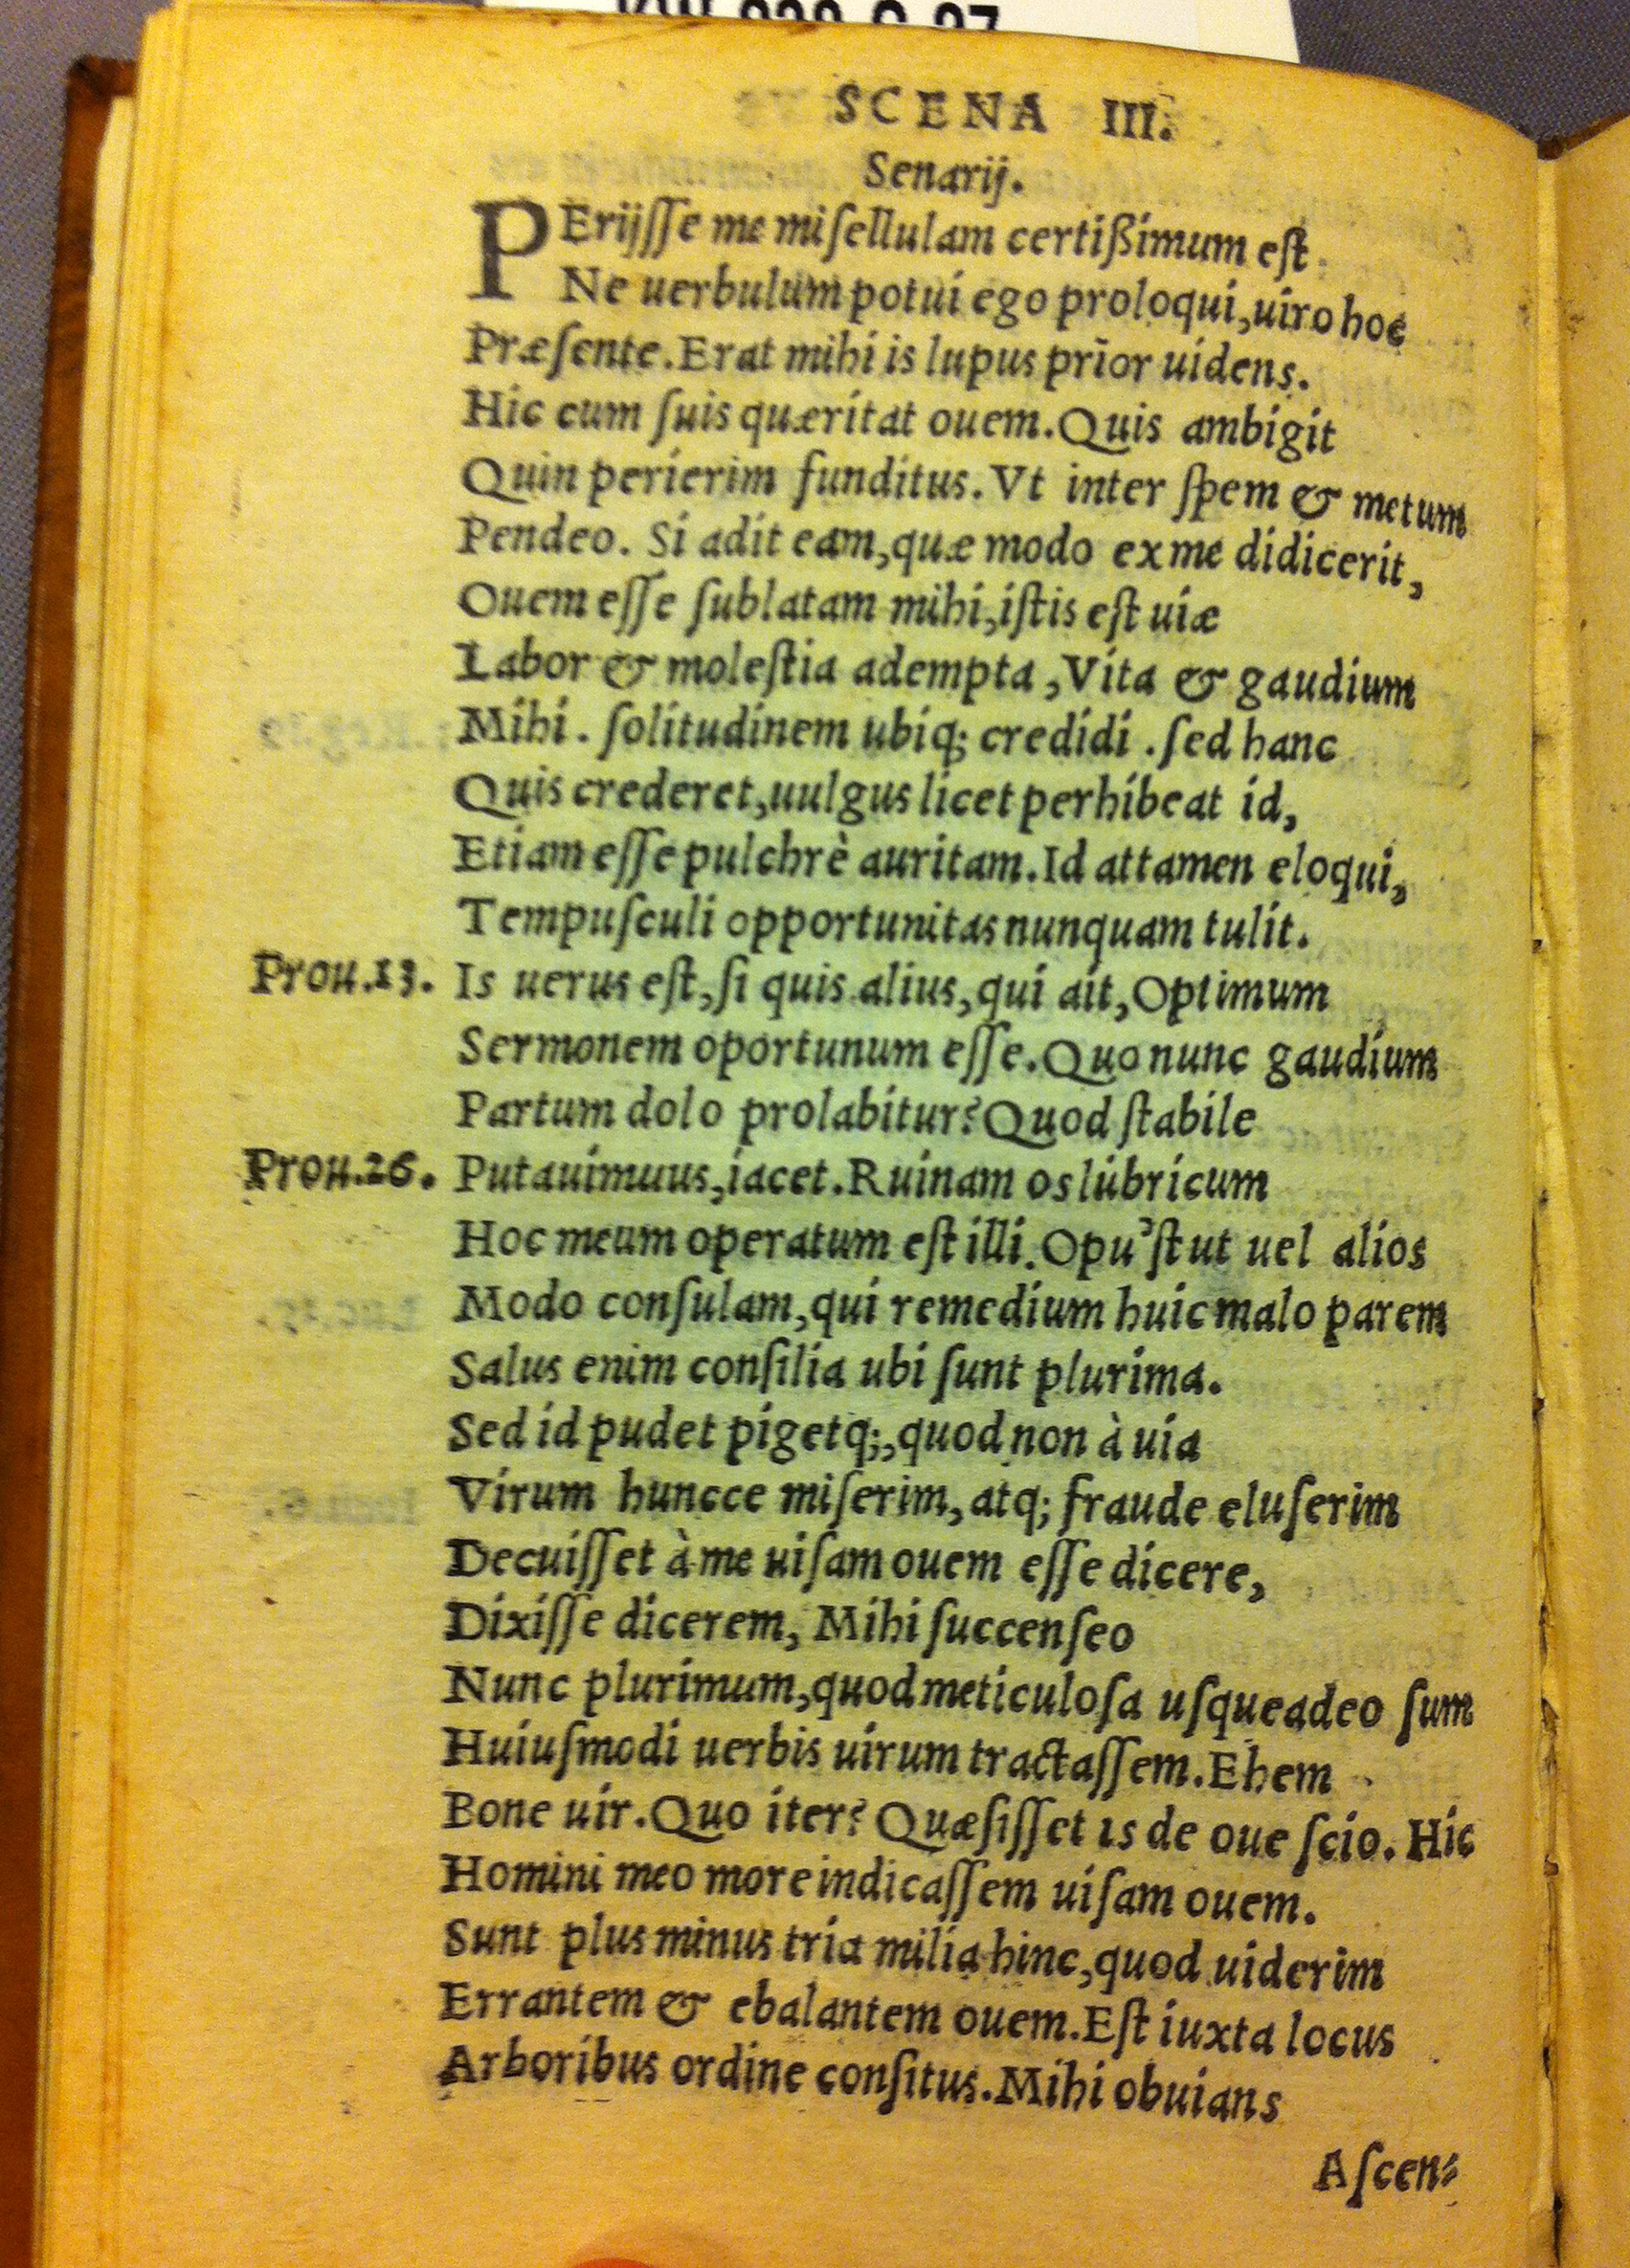 SCENA III.
Senarij.
PErijſſe me miſellulam certißimum eſt
Ne uerbulum potui ego proloqui, uiro hoc
Præſente. Erat mihi is lupus prior uidens.
Hic cum ſuis quæritat ouem. Quis ambigit
Quin perierim funditus. Vt inter ſpem & metum
Pendeo. Si adit eam, quæ modo ex me didicerit,
Ouem eſſe ſublatam mihi, iſtis eſt uiæ
Labor & moleſtia adempta, Vita & gaudium
Mihi. ſolitudinem ubiq; credidi. ſed hanc
Quis crederet, uulgus licet perhibeat id,
Etiam eſſe pulchrè auritam. Id attamen eloqui,
Tempuſculi opportunitas nunquam tulit.
Prou.13. Is uerus eſt, ſi quis alius, qui ait, Optimum
Sermonem oportunum eſſe. Quo nunc gaudium
Partum dolo prolabitur? Quod ſtabile
Prou.26. Putauimuus, iacet. Ruinam os lubricum
Hoc meum operatum eſt illi. Opu'ſt ut uel alios
Modo conſulam, qui remedium huic malo parem
Salus enim conſilia ubi ſunt plurima.
Sed id pudet pigetq;, quod non à uia
Virum huncce miſerim, atq; fraude eluſerim
Decuiſſet à me uiſam ouem eſſe dicere,
Dixiſſe dicerem, Mihi ſuccenſeo
Nunc plurimum, quod meticuloſa uſqueadeo ſum
Huiuſmodi uerbis uirum tractaſſem. Ehem
Bone uir. Quo iter? Quæſiſſet is de oue ſcio. Hic
Homini meo more indicaſſem uiſam ouem.
Sunt plus minus tria milia hinc, quod uiderim
Errantem & ebalantem ouem. Eſt iuxta locus
Arboribus ordine conſitus. Mihi obuians
Aſcen⸗